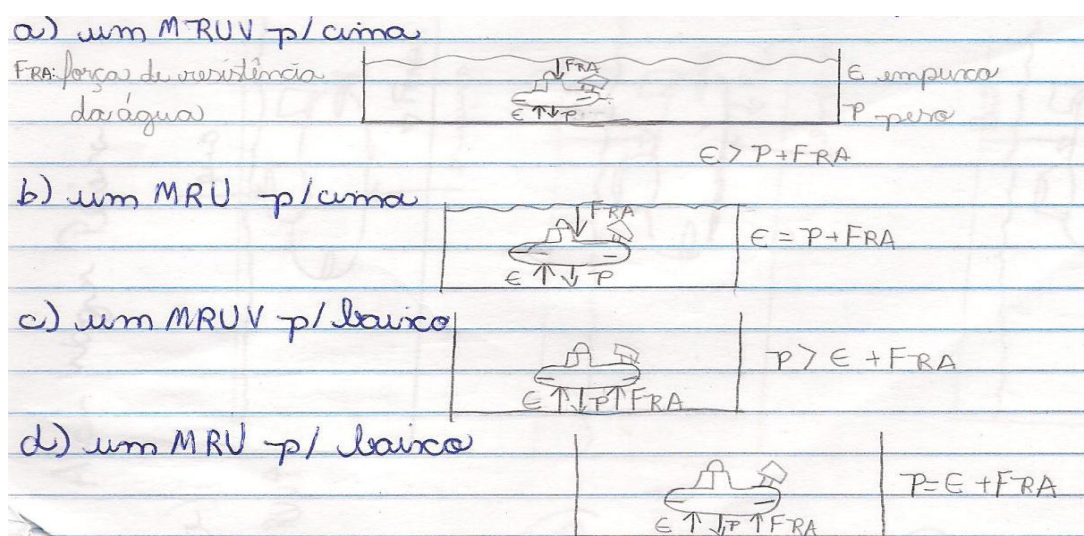 a) um MRUV p/ cima
FRA: força de resistência
da água
FRA
E P
E empuxo
P peso
E > P + FRA
b) um MRU p/ cima
FRA
E P
E = P + FRA
c) um MRUV p/ baixo
E P FRA
P > E + FRA
d) um MRU p/ baixo
E P FRA
P = E + FRA